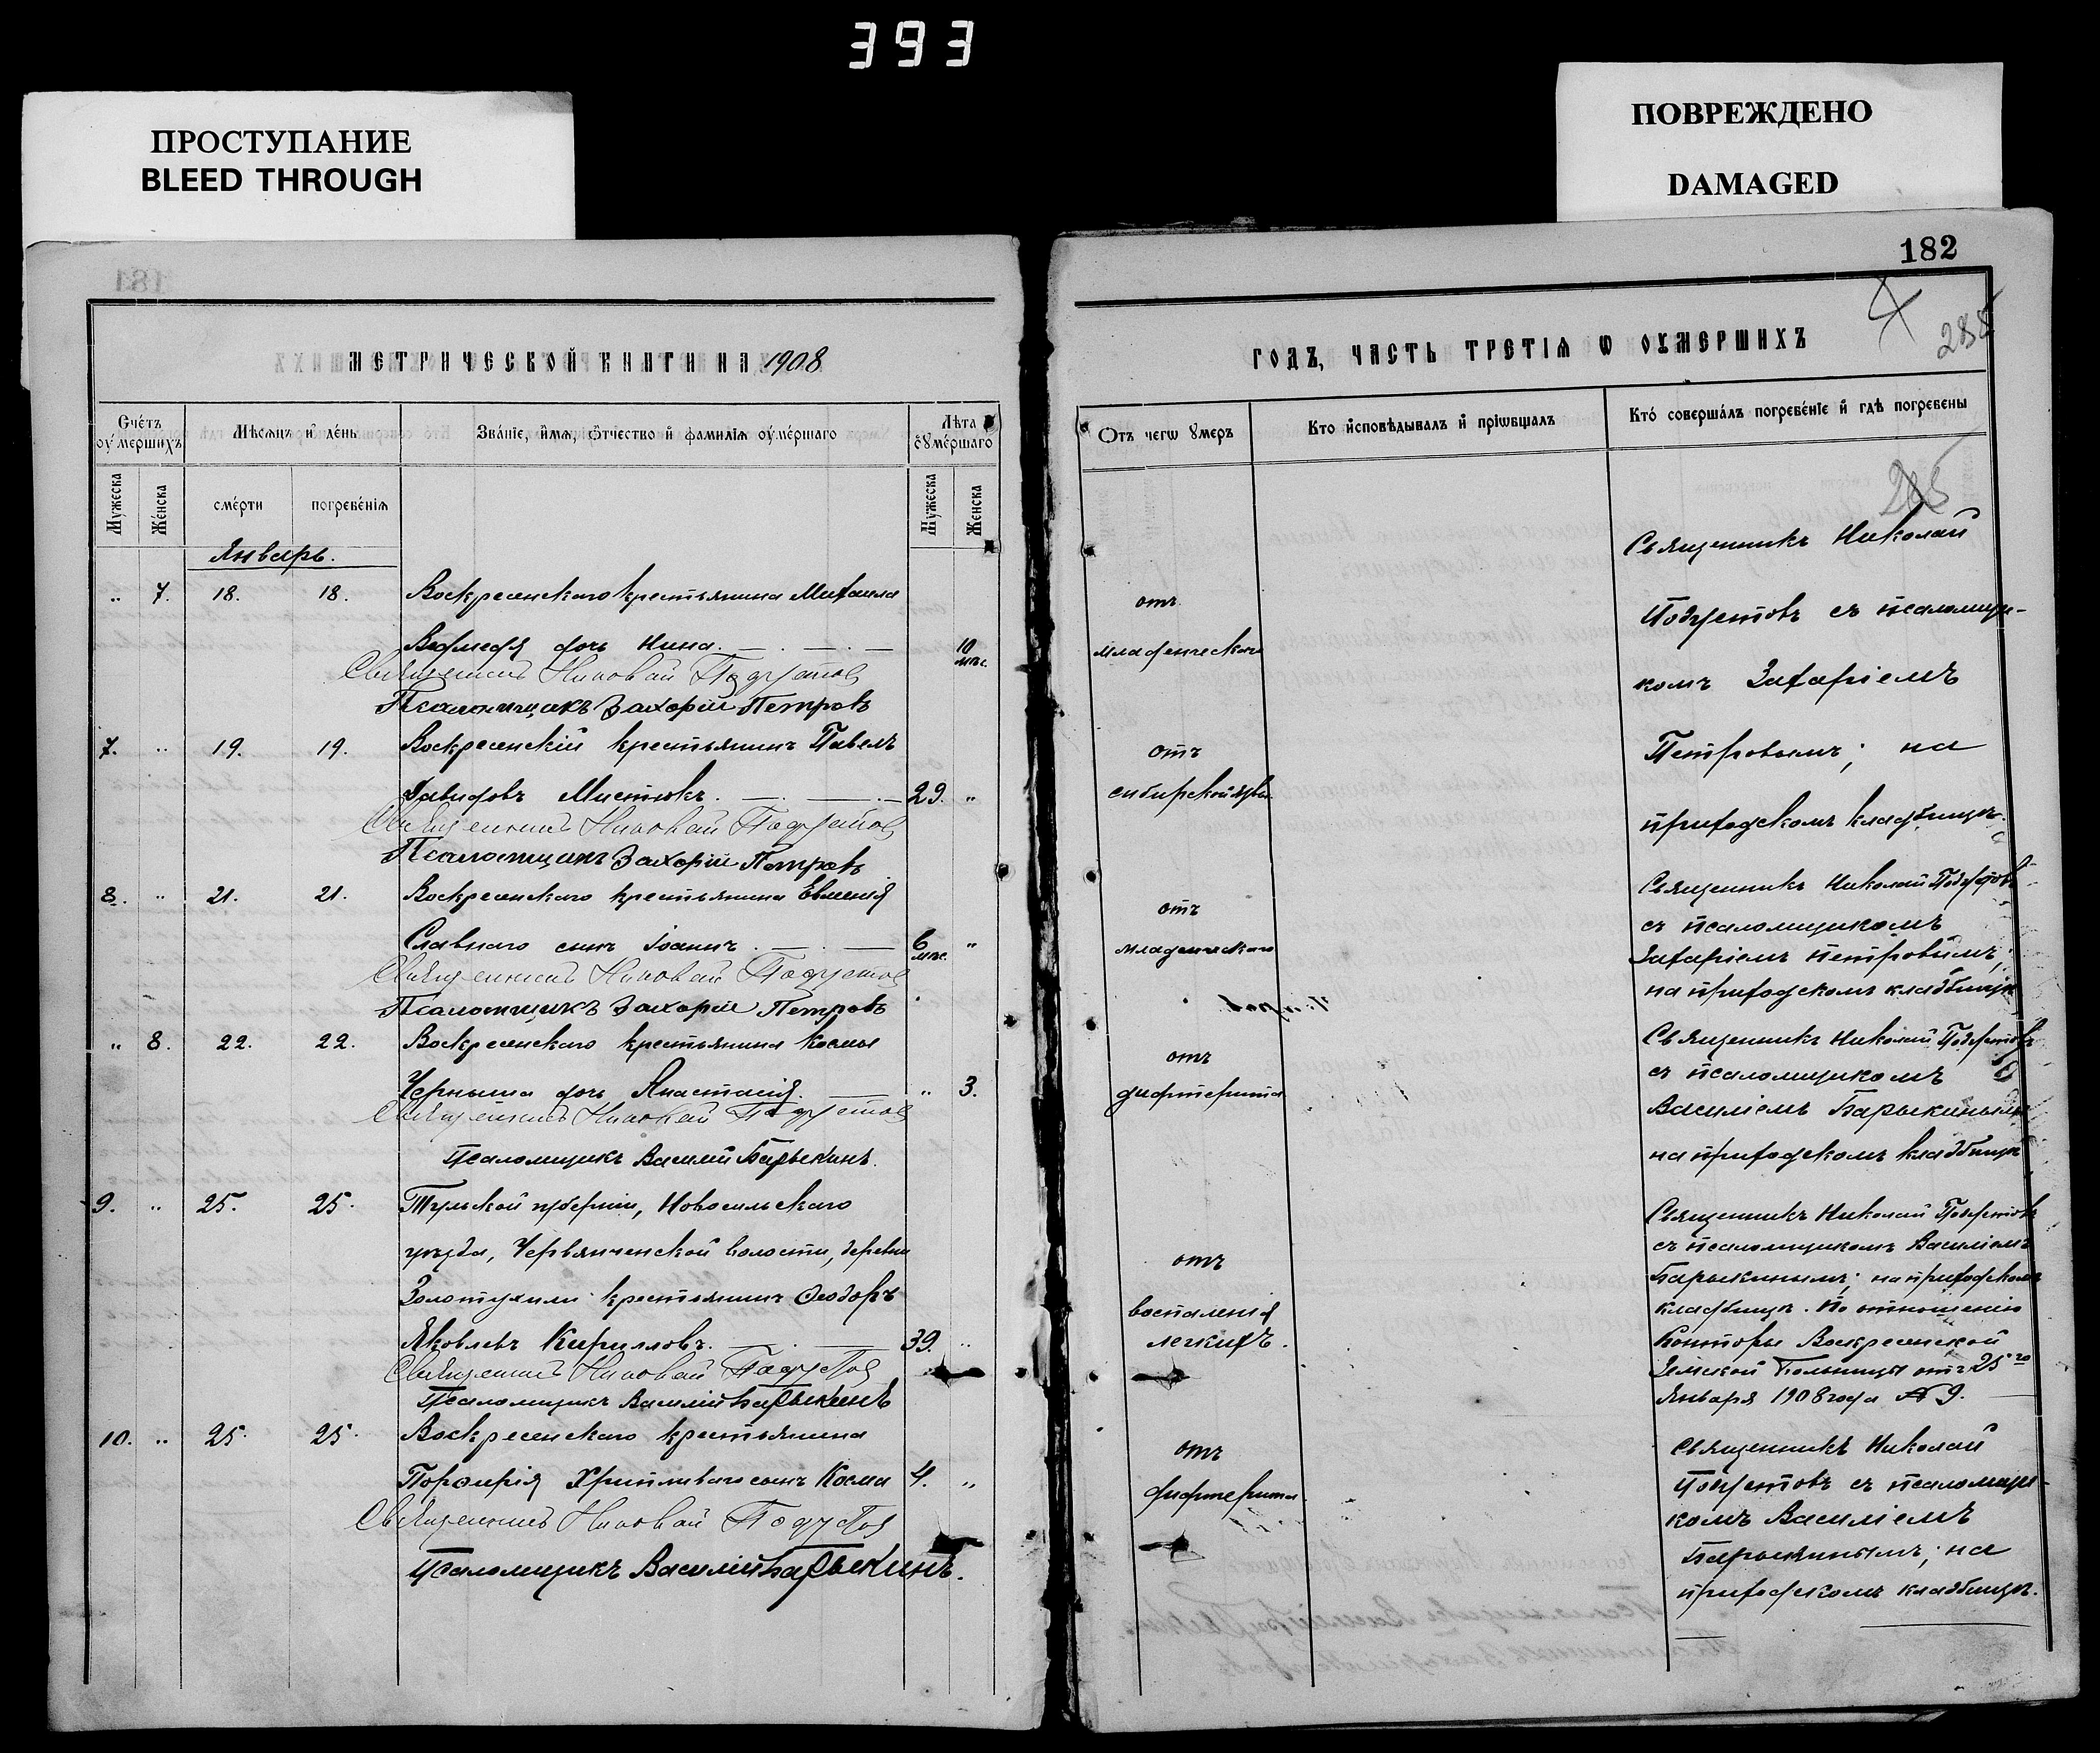 393
ПРОСТУПАНИЕ
BLEED THROUGH
ПОВРЕЖДЕНО
DAMAGED
МЕТРИЧЕСКОЙ КНИГИ НА 1908
Счетъ оумершихъ
Мѣсяцъ и день
Званіе, имя, отчество и фамилія оумершаго
Лѣта оумершаго
Мужеска
Женска
смерти
погребенія
Мужеска
Женска
Январь.
„ 7. 18. 18. Воскресенскаго крестьянина Михаила
Ведмедя дочь Нина. 10 мѣс.
Священникъ Николай Подустовъ
Псаломщикъ Захарій Петровъ
7. „ 19. 19. Воскресенскій крестьянинъ Павелъ
Давидовъ Мистюкъ. 29. „
Священникъ Николай Подустовъ
Псаломщикъ Захарій Петровъ
8. „ 21. 21. Воскресенскаго крестьянина Евменія
Славнаго сынъ Іоаннъ. 6 мѣс. „
Священникъ Николай Подустовъ
Псаломщикъ Захорій Петровъ
„ 8. 22. 22. Воскресенскаго крестьянина Космы
Черныша дочь Анастасія. „ 3.
Священникъ Николай Подустовъ
Псаломщикъ Василій Барыкинъ.
9. „ 25. 25. Тульской губерніи, Новосильскаго
уѣзда, волости, деревни
Золотухили крестьянинъ Ѳеодоръ
Яковлевъ Кирилловъ. 39. „
Священникъ Николай Подустовъ
Псаломщикъ Василій Барыкинъ
10. „ 25. 25. Воскресенскаго крестьянина
Порфирія Хрипливаго сынъ Косма 4. „
Священникъ Николай Подустовъ
Псаломщикъ Василій Барыкинъ.
182
ГОДЪ, ЧАСТЬ ТРЕТІЯ Ѡ ОУМЕРШИХЪ
285
Отъ чегѡ умеръ
Кто исповѣдывалъ и пріѡбщалъ
Кто совершалъ погребеніе и гдѣ погребены
отъ
младенческаго
Священникъ Николай
Подустовъ съ псаломщи-
комъ Захаріемъ
Петровымъ; на
приходскомъ кладбищѣ.
отъ
сибирской язвы
отъ
младенческаго
Священникъ Николай Подустовъ
съ псаломщикомъ
Захаріемъ Петровымъ;
на приходскомъ кладбищѣ
отъ
дифтерита
Священникъ Николай Подустовъ
съ псаломщикомъ
Василіемъ Барыкинымъ
на приходскомъ кладбищѣ
отъ
воспаленія
легкихъ.
Священникъ Николай Подустовъ
съ псаломщикомъ Василіемъ
Барыкинымъ; на приходскомъ
кладбищѣ. По отношенію
Конторы Воскресенской
Земской Больницы отъ 25го
Января 1908 года № 9.
отъ
дифтерита
Священникъ Николай
Подустовъ съ псаломщи-
комъ Василіемъ
Барыкинымъ; на
приходскомъ кладбищѣ.